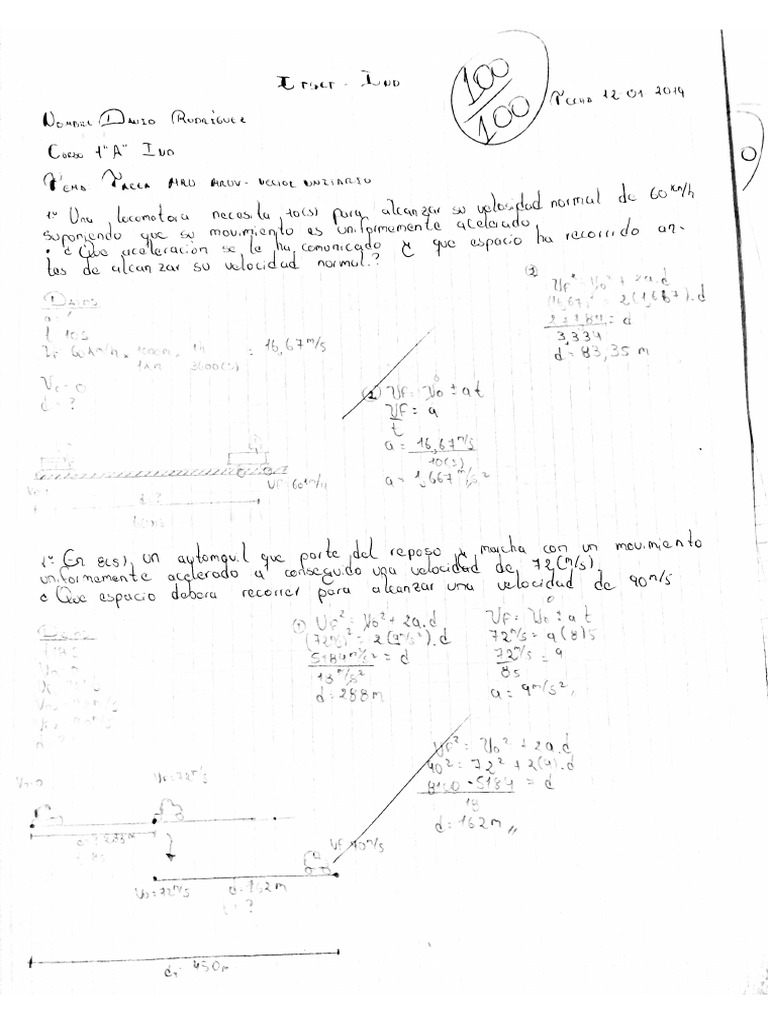 100
100
Fecha 12 01 2014
Nombre Danzo Rodríguez
Curso 1° "A" Ind
Tema
1° Una locomotora necesita 10(s) para alcanzar su velocidad normal de 60 km/h
suponiendo que su movimiento es uniformemente acelerado
¿Que aceleración se le ha comunicado y que espacio ha recorrido an-
tes de alcanzar su velocidad normal.?
Datos
a = ?
t 10s
Vf 60 km/h x 1000m/1km x 1h/3600(s) = 16,67 m/s
Vo = 0
d = ?
(2) Vf = Vo ± at
Vf/t = a
a = 16,67 m/s / 10(s)
a = 1,667 m/s²
Vf² = Vo² + 2a.d
(16,67)² = 2(1,667).d
/ 3,334 = d
d = 83,35 m
Vf = 60km/h
d ?
1° En 8(s), un automovil que parte del reposo y marcha con un movimiento
uniformamente acelerado a conseguido una velocidad de 72(m/s),
¿Que espacio debera recorrer para alcanzar una velocidad de 90m/s
Datos
(1) Vf² = Vo² + 2a.d
(72m/s)² = 2(9m/s²).d
5184m²/s² / 18 m/s² = d
d = 288m
Vf = Vo ± at
72m/s = a(8)s
72m/s / 8s = a
a = 9m/s²,
Vf² = Vo² + 2a.d
90² = 72² + 2(9).d
8100 - 5184 / 18 = d
d = 162m
Vf = 72m/s
Vf 90m/s
Vo = 72m/s
d = 162m
t = ?
dt = 450m